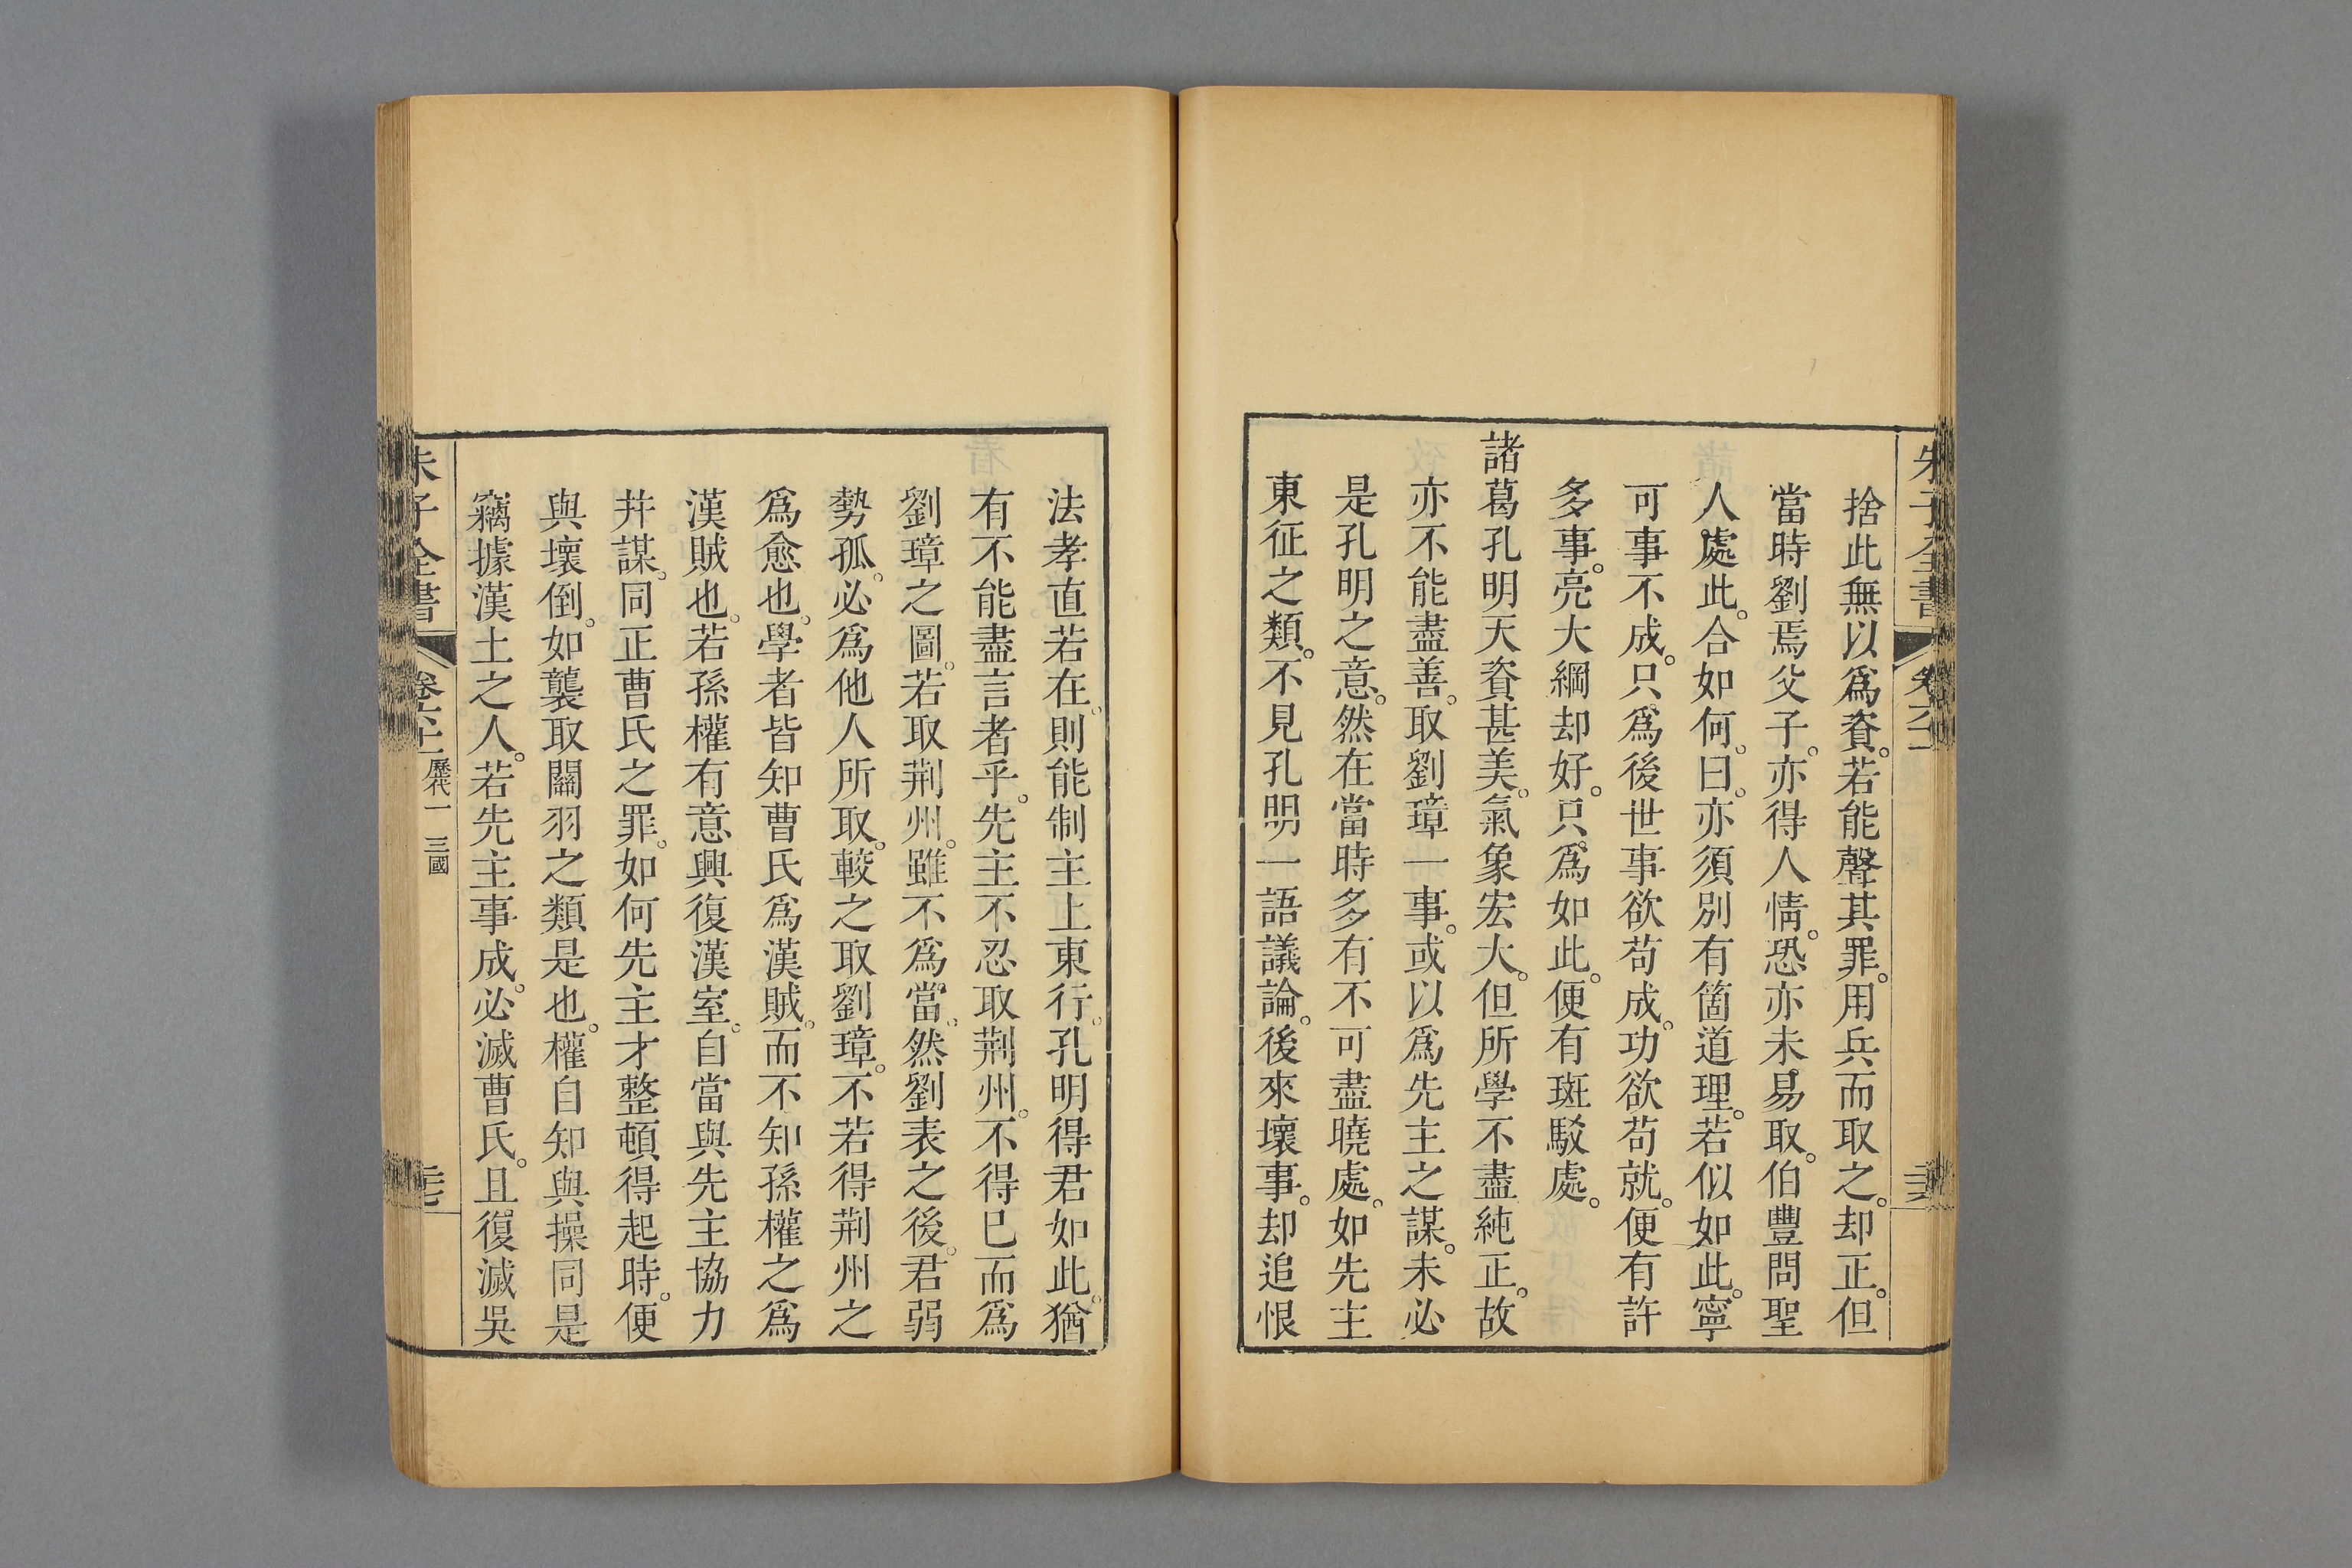 捨此無以爲資。若能聲其罪。用兵而取之。却正。但
當時劉焉父子。亦得人情。恐亦未易取。伯豐問聖
人處此。合如何。曰。亦須別有箇道理。若似如此。寧
可事不成。只爲後世事欲苟成。功欲苟就。便有許
多事。亮大綱却好。只爲如此。便有斑駁處。
諸葛孔明天資甚美。氣象宏大。但所學不盡純正。故
亦不能盡善。取劉璋一事。或以爲先主之謀。未必
是孔明之意。然在當時多有不可盡曉處。如先主
東征之類。不見孔明一語議論。後來壞事。却追恨
法孝直若在。則能制主上東行。孔明得君如此。猶
有不能盡言者乎。先主不忍取荆州。不得已而爲
劉璋之圖。若取荆州。雖不爲當。然劉表之後。君弱
勢孤。必爲他人所取。較之取劉璋。不若得荆州之
爲愈也。學者皆知曹氏爲漢賊。而不知孫權之爲
漢賊也。若孫權有意興復漢室。自當與先主協力
并謀。同正曹氏之罪。如何先主才整頓得起時。便
與壞倒。如襲取關羽之類是也。權自知與操同是
竊據漢土之人。若先主事成。必滅曹氏。且復滅吳
朱子全書 歷代一 三國